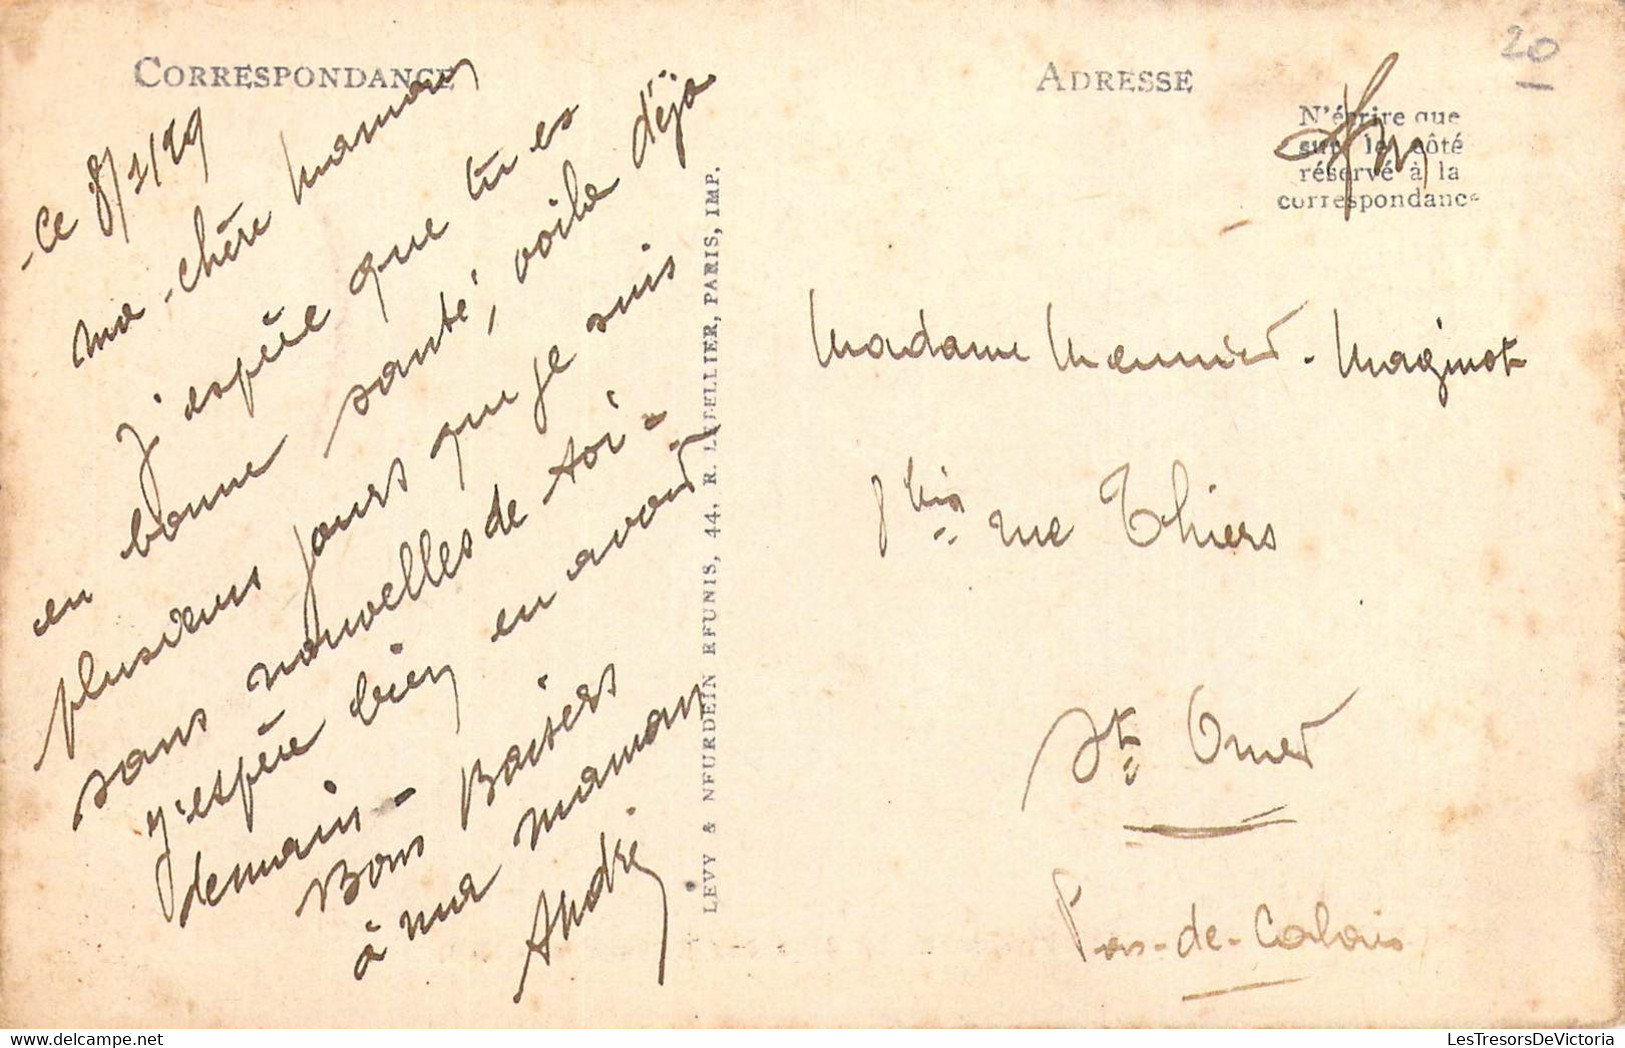 CORRESPONDANCE
Ce 8/1/29
ma chère maman
J'espère que tu es
en bonne santé, voila déja
plusieurs jours que je suis
sans nouvelles de toi-
j'espère bien en avoir
demain-
Bons Baisers
à ma maman
André
LEVY & NEURDEIN REUNIS, 44, R. LETELLIER, PARIS, IMP.
ADRESSE
20
N'écrire que
sur le côté
réservé à la
correspondance
Madame Meunier-Maginot
8 bis rue Thiers
St Omer
Pas-de-Calais
LesTresorsDeVictoria